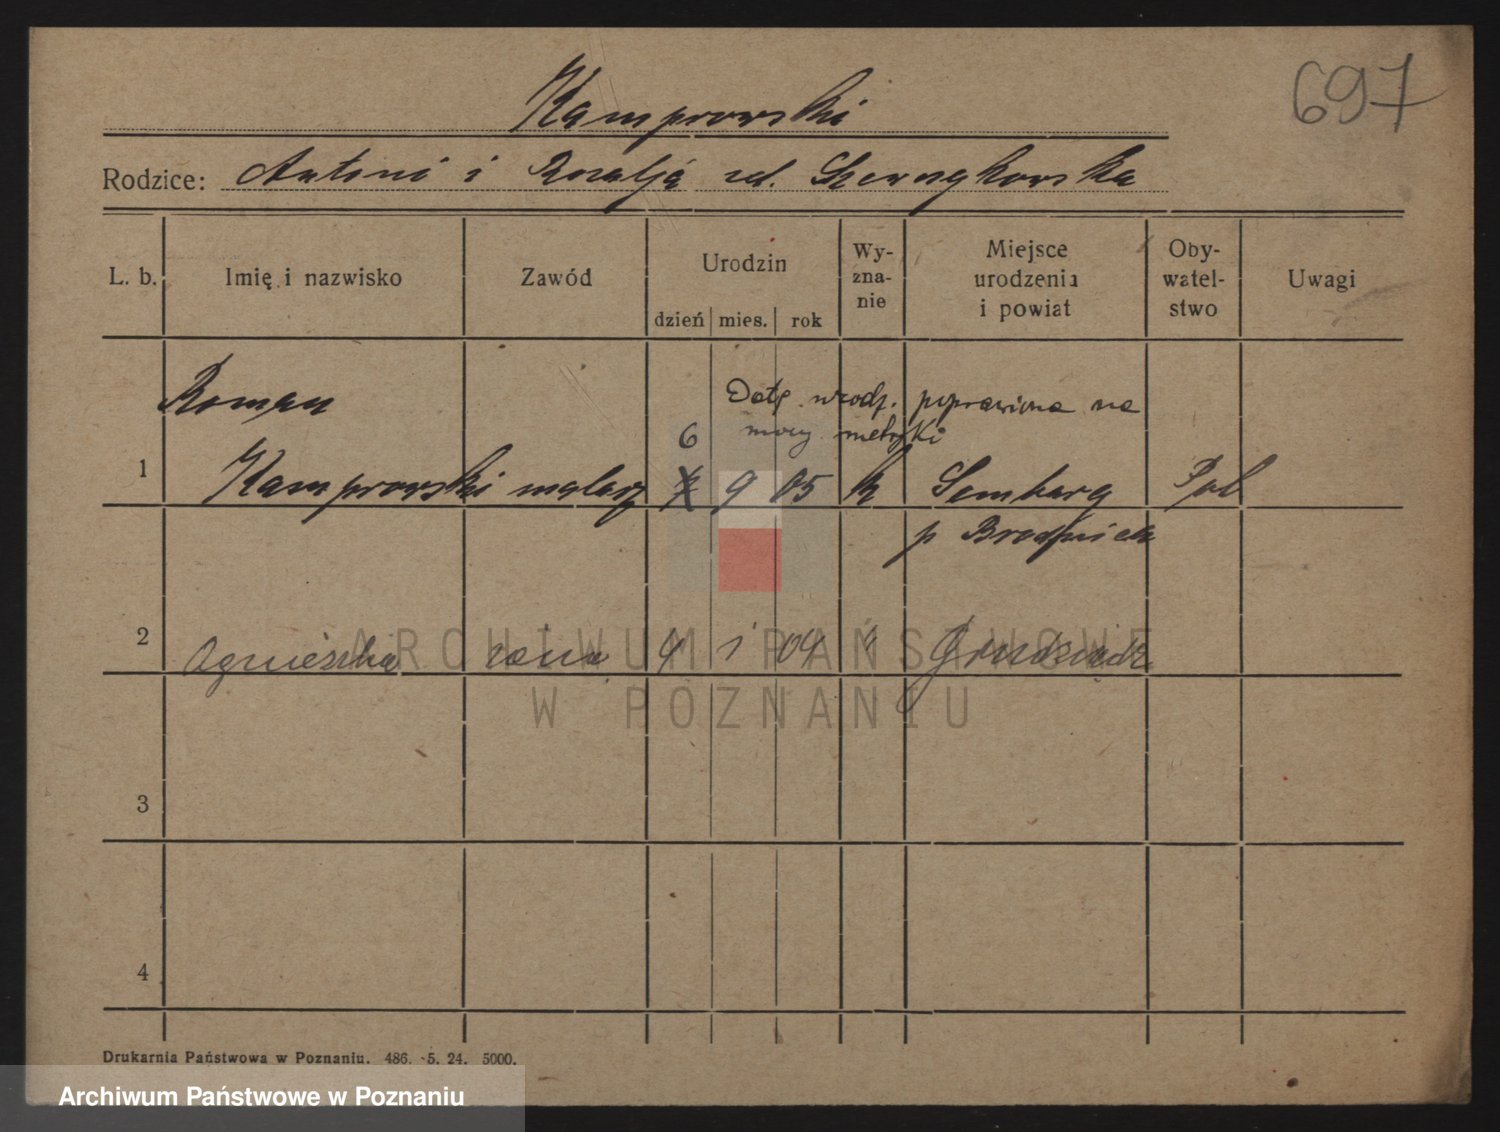 697
Kamprowski
Rodzice: Antoni i Rozalja zd.
L. b. Imię i nazwisko Zawód Urodzin Wy-zna-nie Miejsce urodzenia i powiat Oby-watel-stwo Uwagi
dzień mies. rok
Roman Datę urodz. poprawiona na
6 mocy metryki
1 Kamprowski malarz 7 9 05 k Sembarg Pol
p Brodnica
2 Agnieszka żona 9 1 04 " Grudziądz
3
4
ARCHIWUM PAŃSTWOWE
W POZNANIU
Drukarnia Państwowa w Poznaniu. 486. 5. 24. 5000.
Archiwum Państwowe w Poznaniu